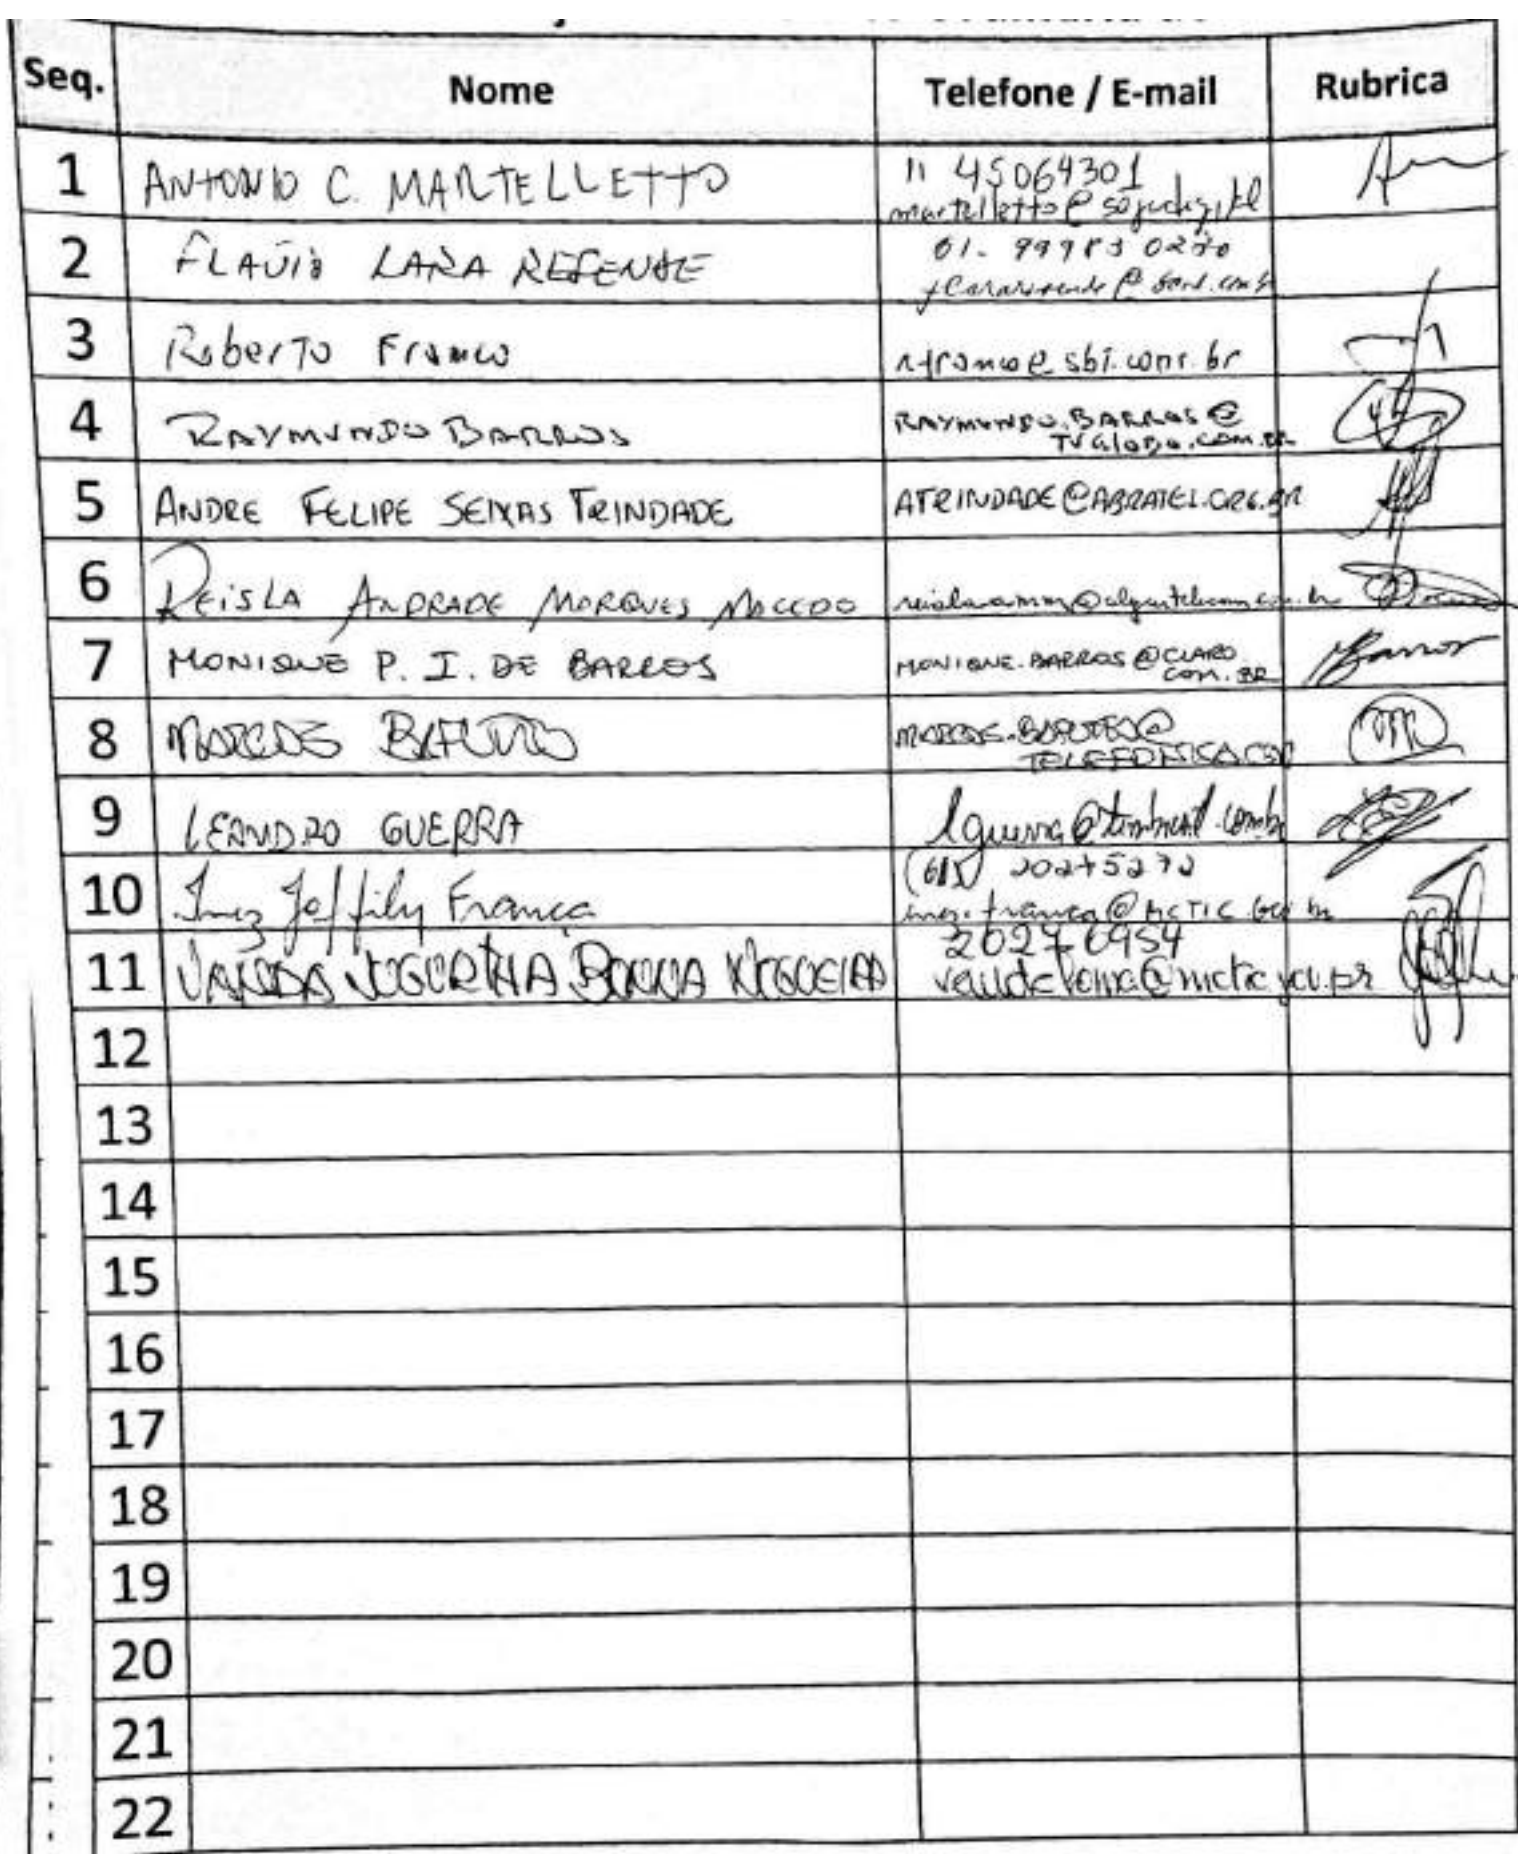 Seq. Nome Telefone / E-mail Rubrica
1 ANTONIO C. MARTELLETTO 11 45064301
martelletto@
2 FLAVIO LARA RESENDE 61-
3 Roberto Franco rfranco@sbt.com.br
4 RAYMUNDO BARROS RAYMUNDO.BARROS@
TVGLOBO.COM.BR
5 ANDRE FELIPE SEIXAS TRINDADE ATRINDADE@ABRATEL.ORG.BR
6 REISLA ANDRADE MARQUES MACEDO
7 MONIQUE P. I. DE BARROS MONIQUE.BARROS@CLARO.
COM.BR
8 MARCOS BAFUTTO MARCOS.BAFUTTO@
TELEFONICA.COM
9 LEANDRO GUERRA lguerra@timbrasil.com.br
10 Inez Joffily França (61) 20275272
inez.franca@MCTIC.gov.br
11 BORBA NOGUEIRA 20276954
12
13
14
15
16
17
18
19
20
21
22